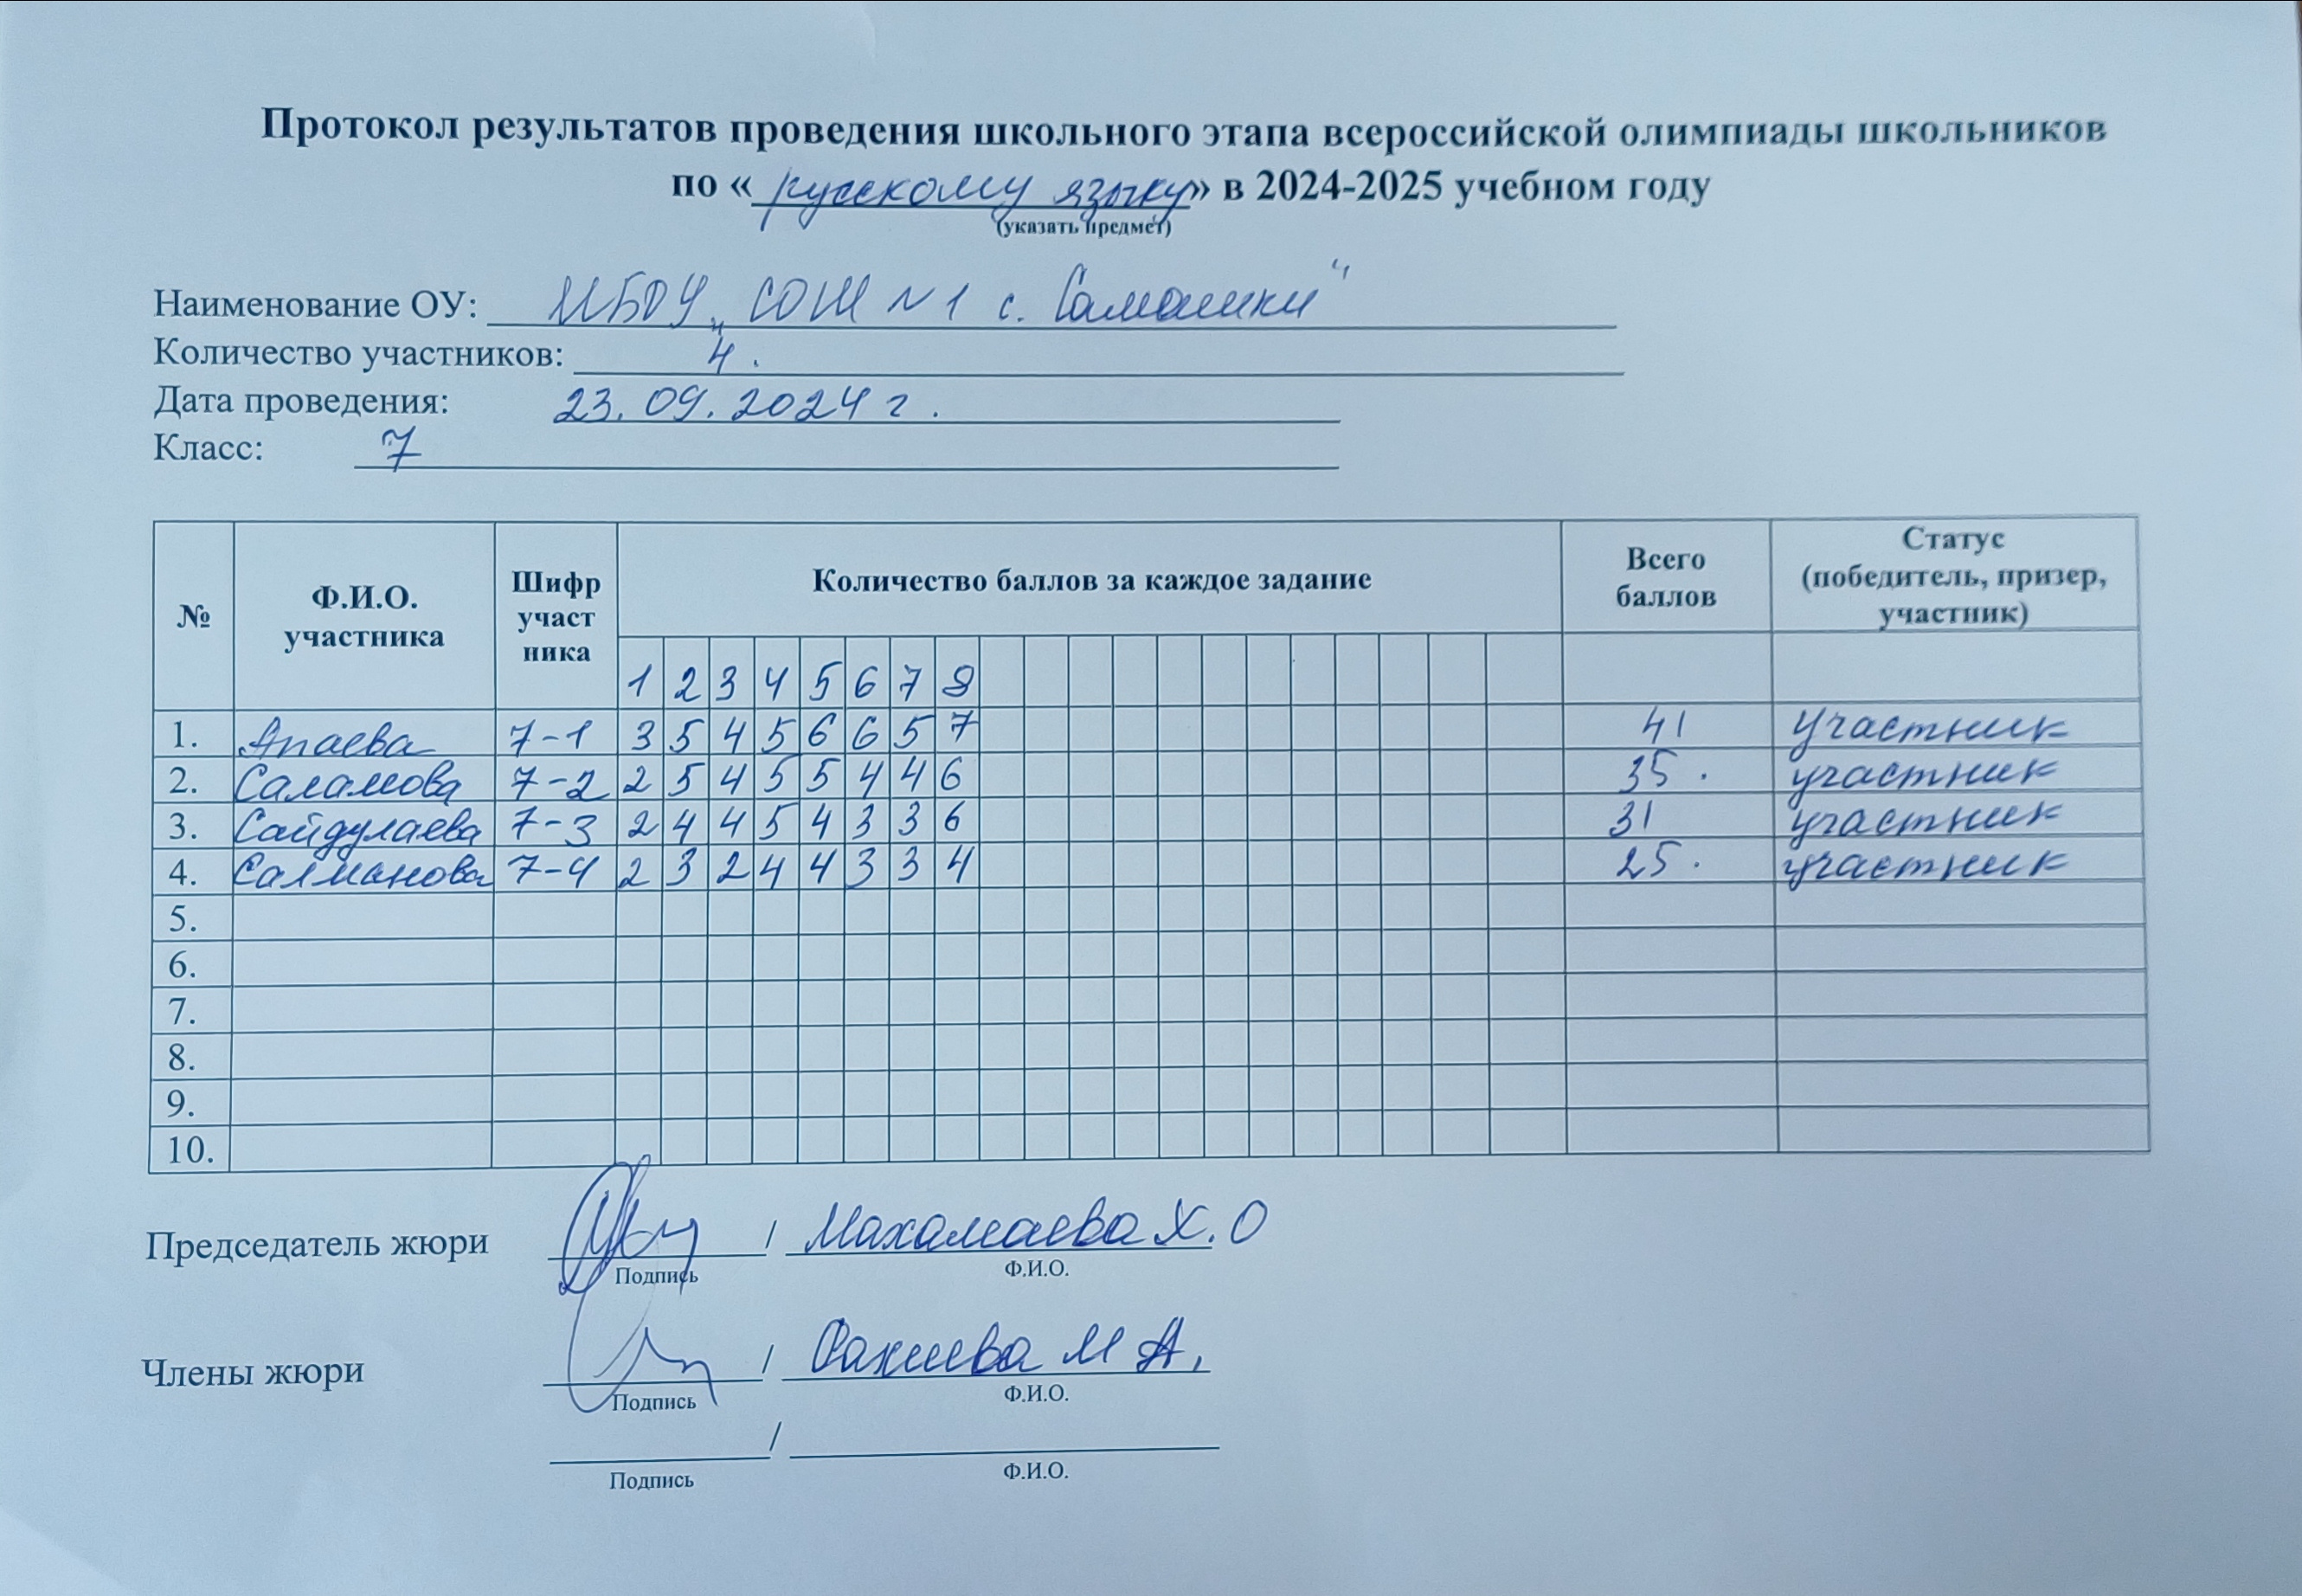 Протокол результатов проведения школьного этапа всероссийской олимпиады школьников
по «русскому языку» в 2024-2025 учебном году
(указать предмет)
Наименование ОУ: МБОУ „СОШ №1 с. Самашки"
Количество участников: 4.
Дата проведения: 23.09.2024 г.
Класс: 7
№ Ф.И.О. участника Шифр участ ника Количество баллов за каждое задание Всего баллов Статус (победитель, призер, участник)
1 2 3 4 5 6 7 8
1. Апаева 7-1 3 5 4 5 6 6 5 7 41 участник
2. Саламова 7-2 2 5 4 5 5 4 4 6 35. участник
3. Сайдулаева 7-3 2 4 4 5 4 3 3 6 31 участник
4. Салманова 7-4 2 3 2 4 4 3 3 4 25. участник
5.
6.
7.
8.
9.
10.
Председатель жюри / Махамаева Х.О
Подпись Ф.И.О.
Члены жюри / М А.
Подпись Ф.И.О.
/
Подпись Ф.И.О.